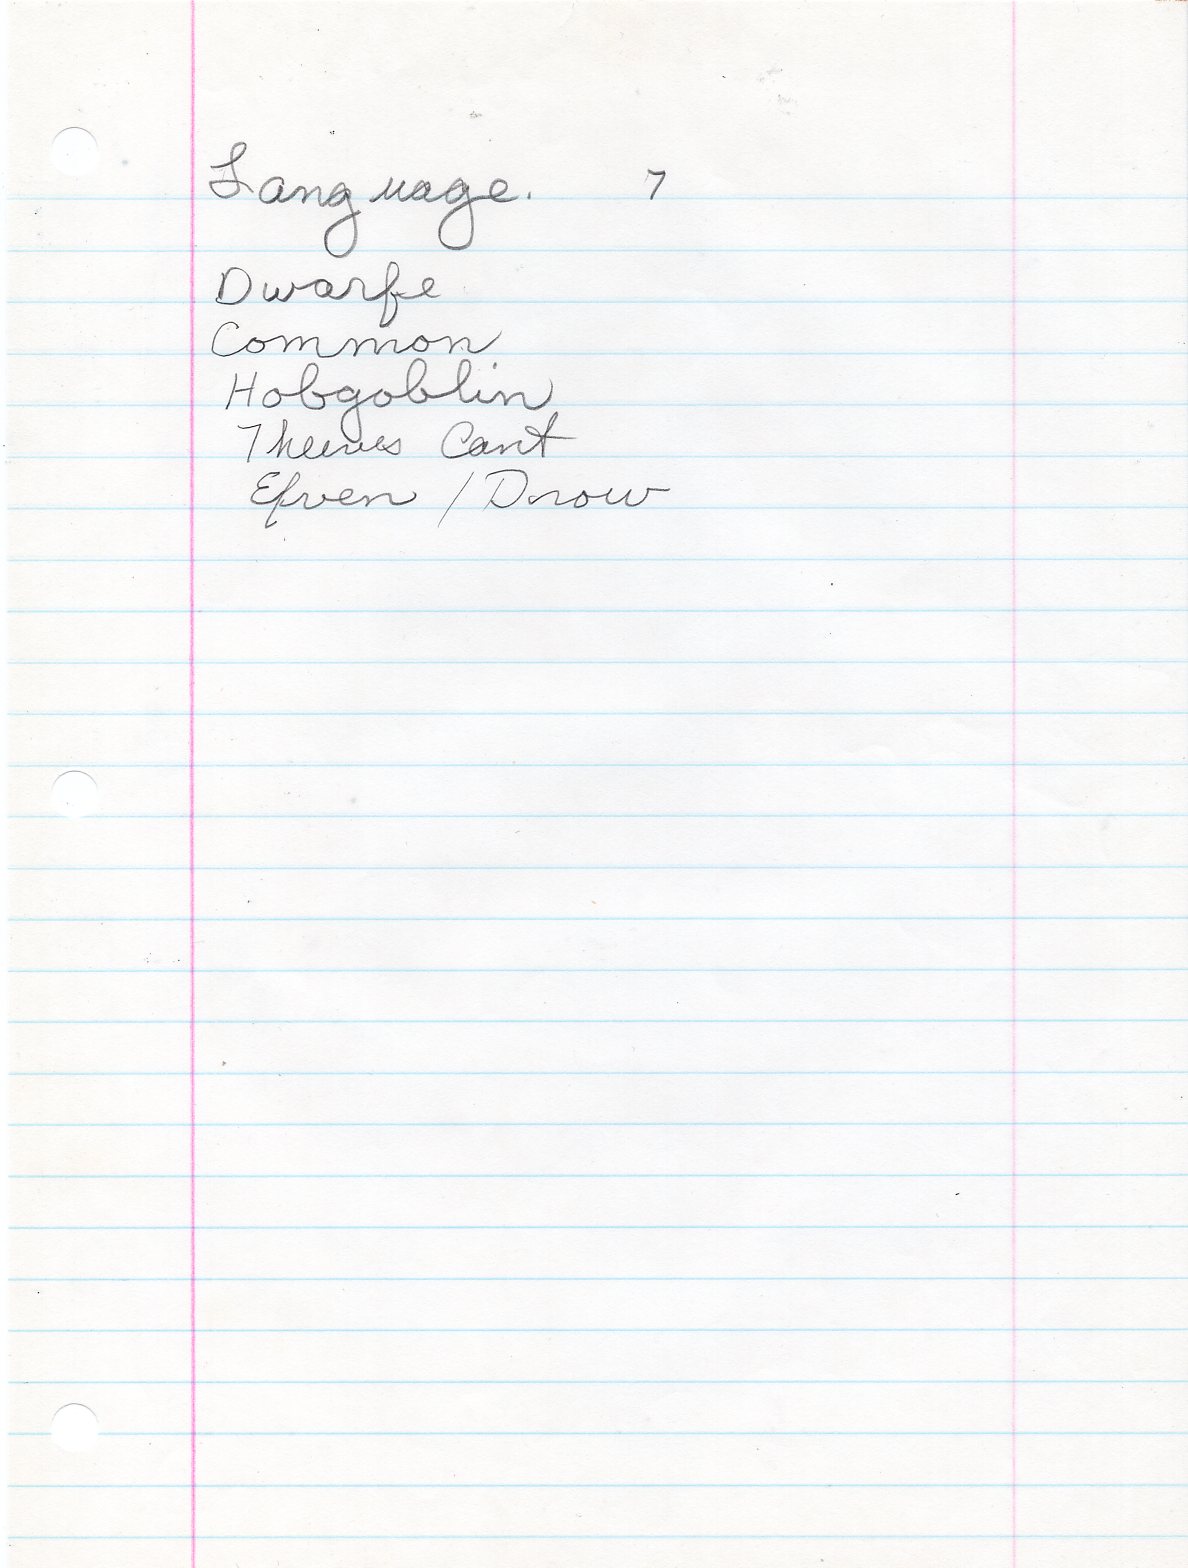 Language. 7
Dwarfe
Common
Hobgoblin
Theives Cant
Efven / Drow